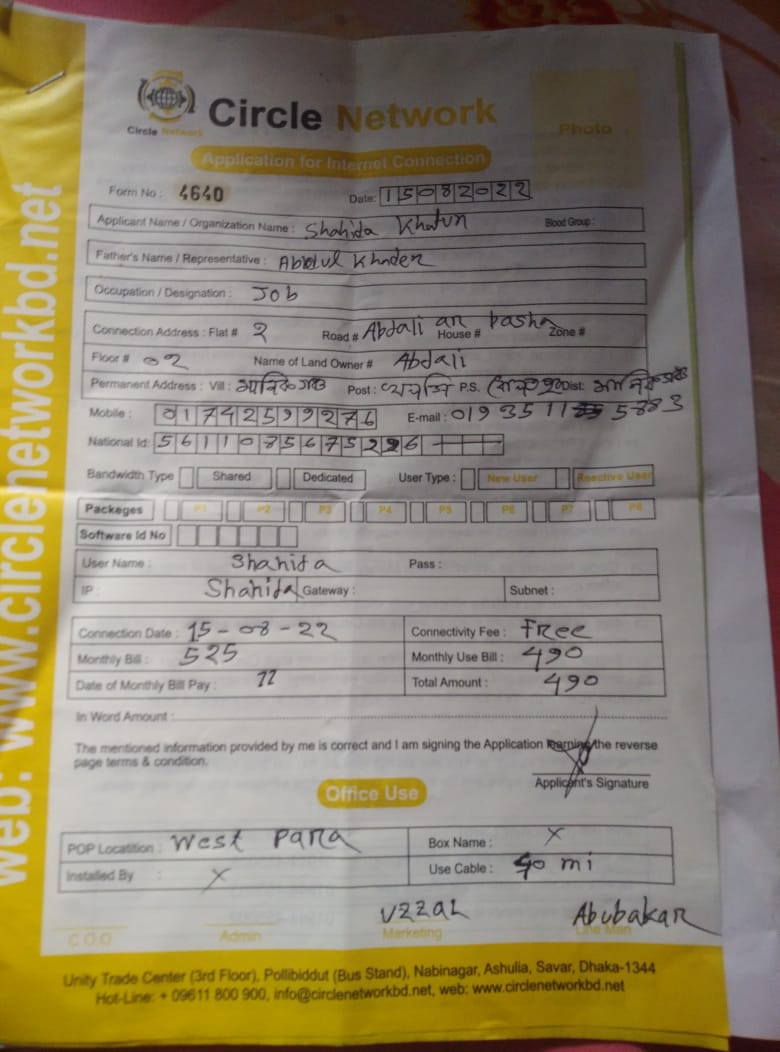 web: www.circlenetworkbd.net
Circle Network
Circle Network
Photo
Application for Internet Connection
Form No : 4640 Date: 15082022
Applicant Name / Organization Name : Shahida Khatun Blood Group :
Father's Name / Representative : Abdul Khader
Occupation / Designation : Job
Connection Address : Flat # 2 Road # Abdali House # Zone #
Floor # 02 Name of Land Owner # Abdali
Permanent Address : Vill : Post : P.S. Dist:
Mobile : 01742599276 E-mail : 01935115883
National Id: 5611085675226
Bandwidth Type Shared Dedicated User Type : New User Reactive User
Packeges P1 P2 P3 P4 P5 P6 P7 P8
Software Id No
User Name : Shahida Pass :
IP : Shahida Gateway : Subnet :
Connection Date : 15-08-22 Connectivity Fee : Free
Monthly Bill : 525 Monthly Use Bill : 490
Date of Monthly Bill Pay : Total Amount : 490
In Word Amount :
The mentioned information provided by me is correct and I am signing the Application the reverse
page terms & condition.
Applicant's Signature
Office Use
POP Locatition : West Para Box Name : X
Installed By : X Use Cable : 90 mi
Uzzal Abubakar
C.O.O Admin Marketing Line Man
Unity Trade Center (3rd Floor), Pollibiddut (Bus Stand), Nabinagar, Ashulia, Savar, Dhaka-1344
Hot-Line: + 09611 800 900, info@circlenetworkbd.net, web: www.circlenetworkbd.net